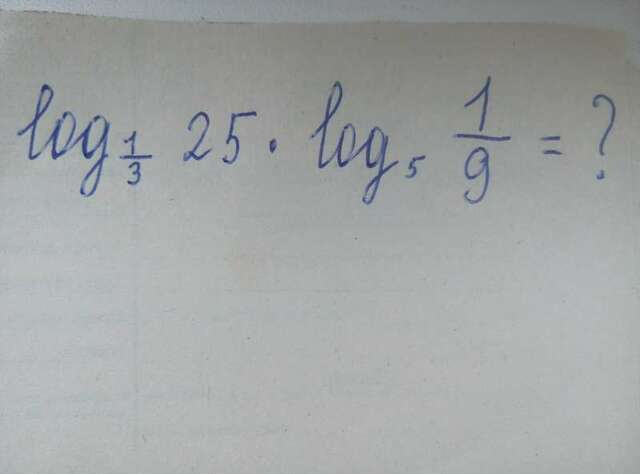 log_{1/3} 25 · log_5 1/9 = ?